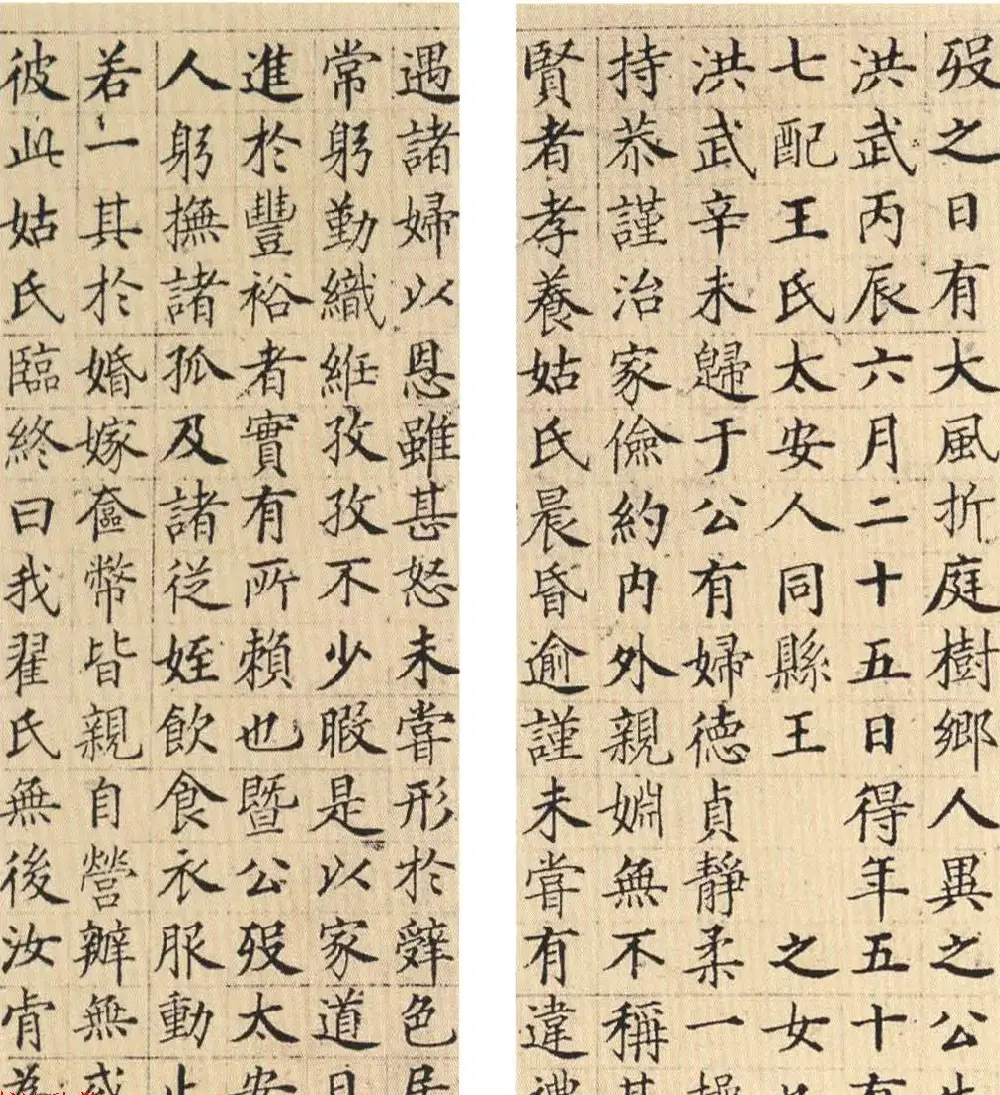 歿之日有大風折庭樹鄉人異之公
洪武丙辰六月二十五日得年五十有
七配王氏太安人同縣王之女
洪武辛未歸于公有婦德貞靜柔一操
持恭謹治家儉約內外親婣無不稱其
賢者孝養姑氏晨昏逾謹未嘗有違禮
遇諸婦以恩雖甚怒未嘗形於辭色居
常躬勤織絍孜孜不少暇是以家道日
進於豐裕者實有所賴也暨公歿太安
人躬撫諸孤及諸從姪飲食衣服動止
若一其於婚嫁奩幣皆親自營辦無或
彼此姑氏臨終曰我翟氏無後汝肯為